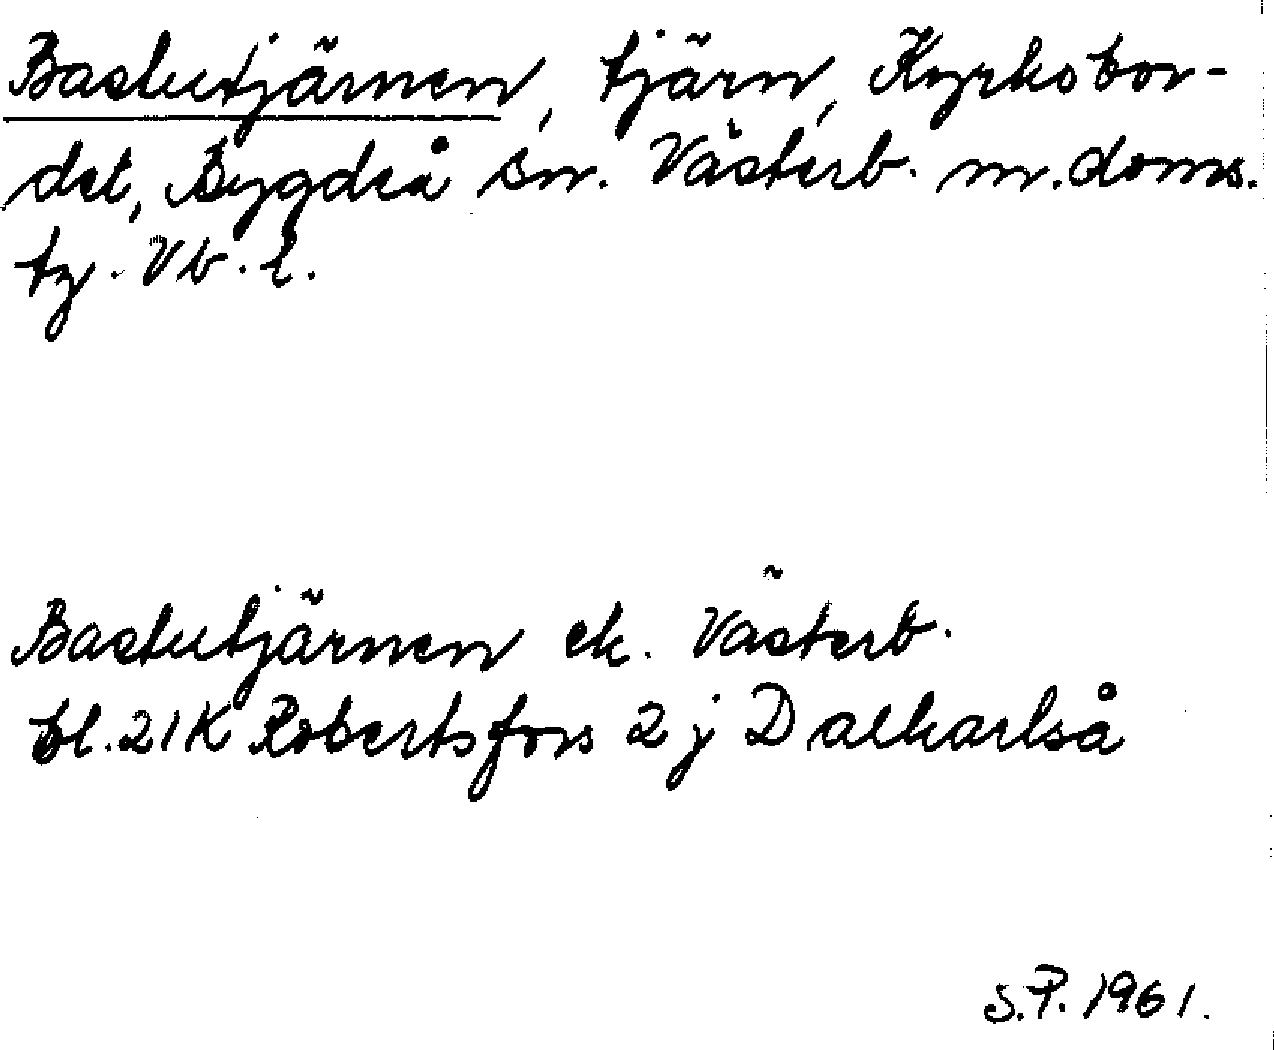 Bastutjärnen, tjärn, Kyrksbor-
det, Bygdeå sn. Västerb. m. doms.
tg. Vb. l.
Bastutjärnen ek. Västerb.
bl. 21K Robertsfors 2 j Dalkarlså
S.P. 1961.